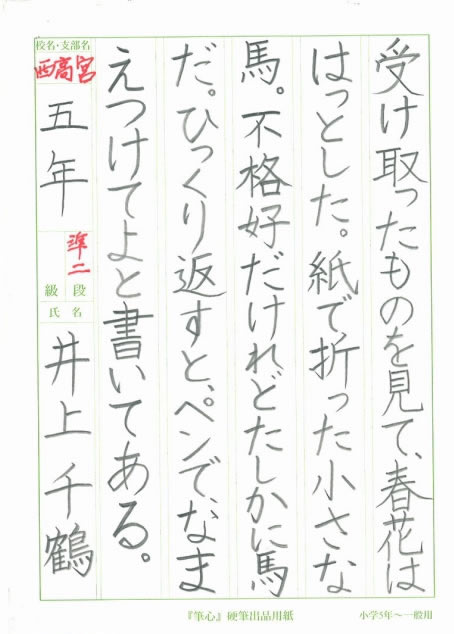 受け取ったものを見て、春花は
はっとした。紙で折った小さな
馬。不格好だけれどたしかに馬
だ。ひっくり返すと、ペンで、なま
えつけてよと書いてある。
校名・支部名
西高宮
五年
準二
級 段
氏 名
井上千鶴
『筆心』硬筆出品用紙
小学5年〜一般用